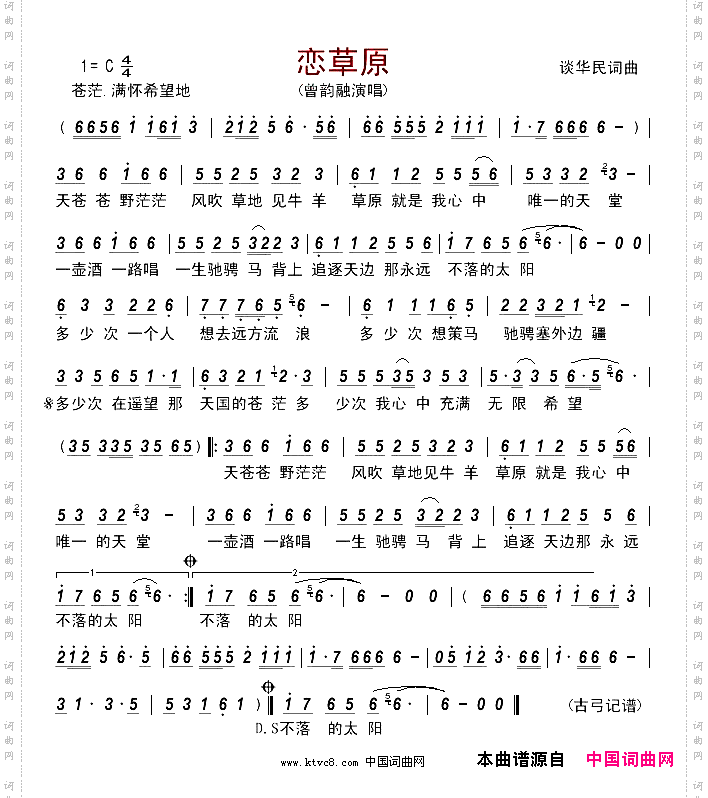 恋草原
1= C 4/4
谈华民词曲
苍茫.满怀希望地
(曾韵融演唱)
( 6656 1 161 3 | 212 5 6 · 56 | 66 555 2 111 | 1 · 7 666 6 - )
3 6 6 1 6 6 | 5 5 2 5 3 2 3 | 6 1 1 2 5 5 56 | 5 3 3 2 2 3 -
天苍 苍 野茫茫 风吹 草地 见牛 羊 草原 就是 我心 中 唯一的天 堂
3 6 6 1 6 6 | 5 5 2 5 322 3 | 6 1 1 2 5 5 6 | 1 7 6 5 6 5 6 · | 6 - 0 0
一壶酒 一路唱 一生驰骋 马 背上 追逐天边 那永远 不落的太阳
6 3 2 2 2 6 | 7 7 7 6 5 5 6 - | 6 1 1 1 6 5 | 2 2 3 2 1 1 2 -
多 少 次 一个人 想去远方流 浪 多 少 次 想策马 驰骋塞外边 疆
3 3 5 6 5 1 · 1 | 6 3 2 1 1 2 · 3 | 5 5 5 35 3 5 | 5 · 3 3 5 6 · 5 5 6 ·
※多少次 在遥望 那 天国的苍 茫多 少次 我心 中 充满 无 限 希 望
(35 335 35 65) 𝄆 3 6 6 1 6 6 | 5 5 2 5 3 2 3 | 6 1 1 2 5 5 56
天苍苍 野茫茫 风吹 草地见牛 羊 草原 就是 我心 中
5 3 3 2 2 3 - | 3 6 6 1 6 6 | 5 5 2 5 322 3 | 6 1 1 2 5 5 6
唯一 的天 堂 一壶酒 一路唱 一生 驰骋 马 背 上 追逐 天边那 永远
1 2
1 7 6 5 6 5 6 · 𝄇 1 7 6 5 6 5 6 · | 6 - 0 0 | ( 6 6 5 6 1 1 6 1 3
不落的太 阳 不落 的太 阳
212 5 6 · 5 | 66 555 2 111 | 1 · 7 66 6 6 - | 05 12 3 · 66
3 1 · 3 · 5 | 5 3 1 6 1 ) 1 7 6 5 6 5 6 · | 6 - 0 0
(古弓记谱)
D.S不落 的太 阳
www.ktvc8.com 中国词曲网
本曲谱源自 中国词曲网